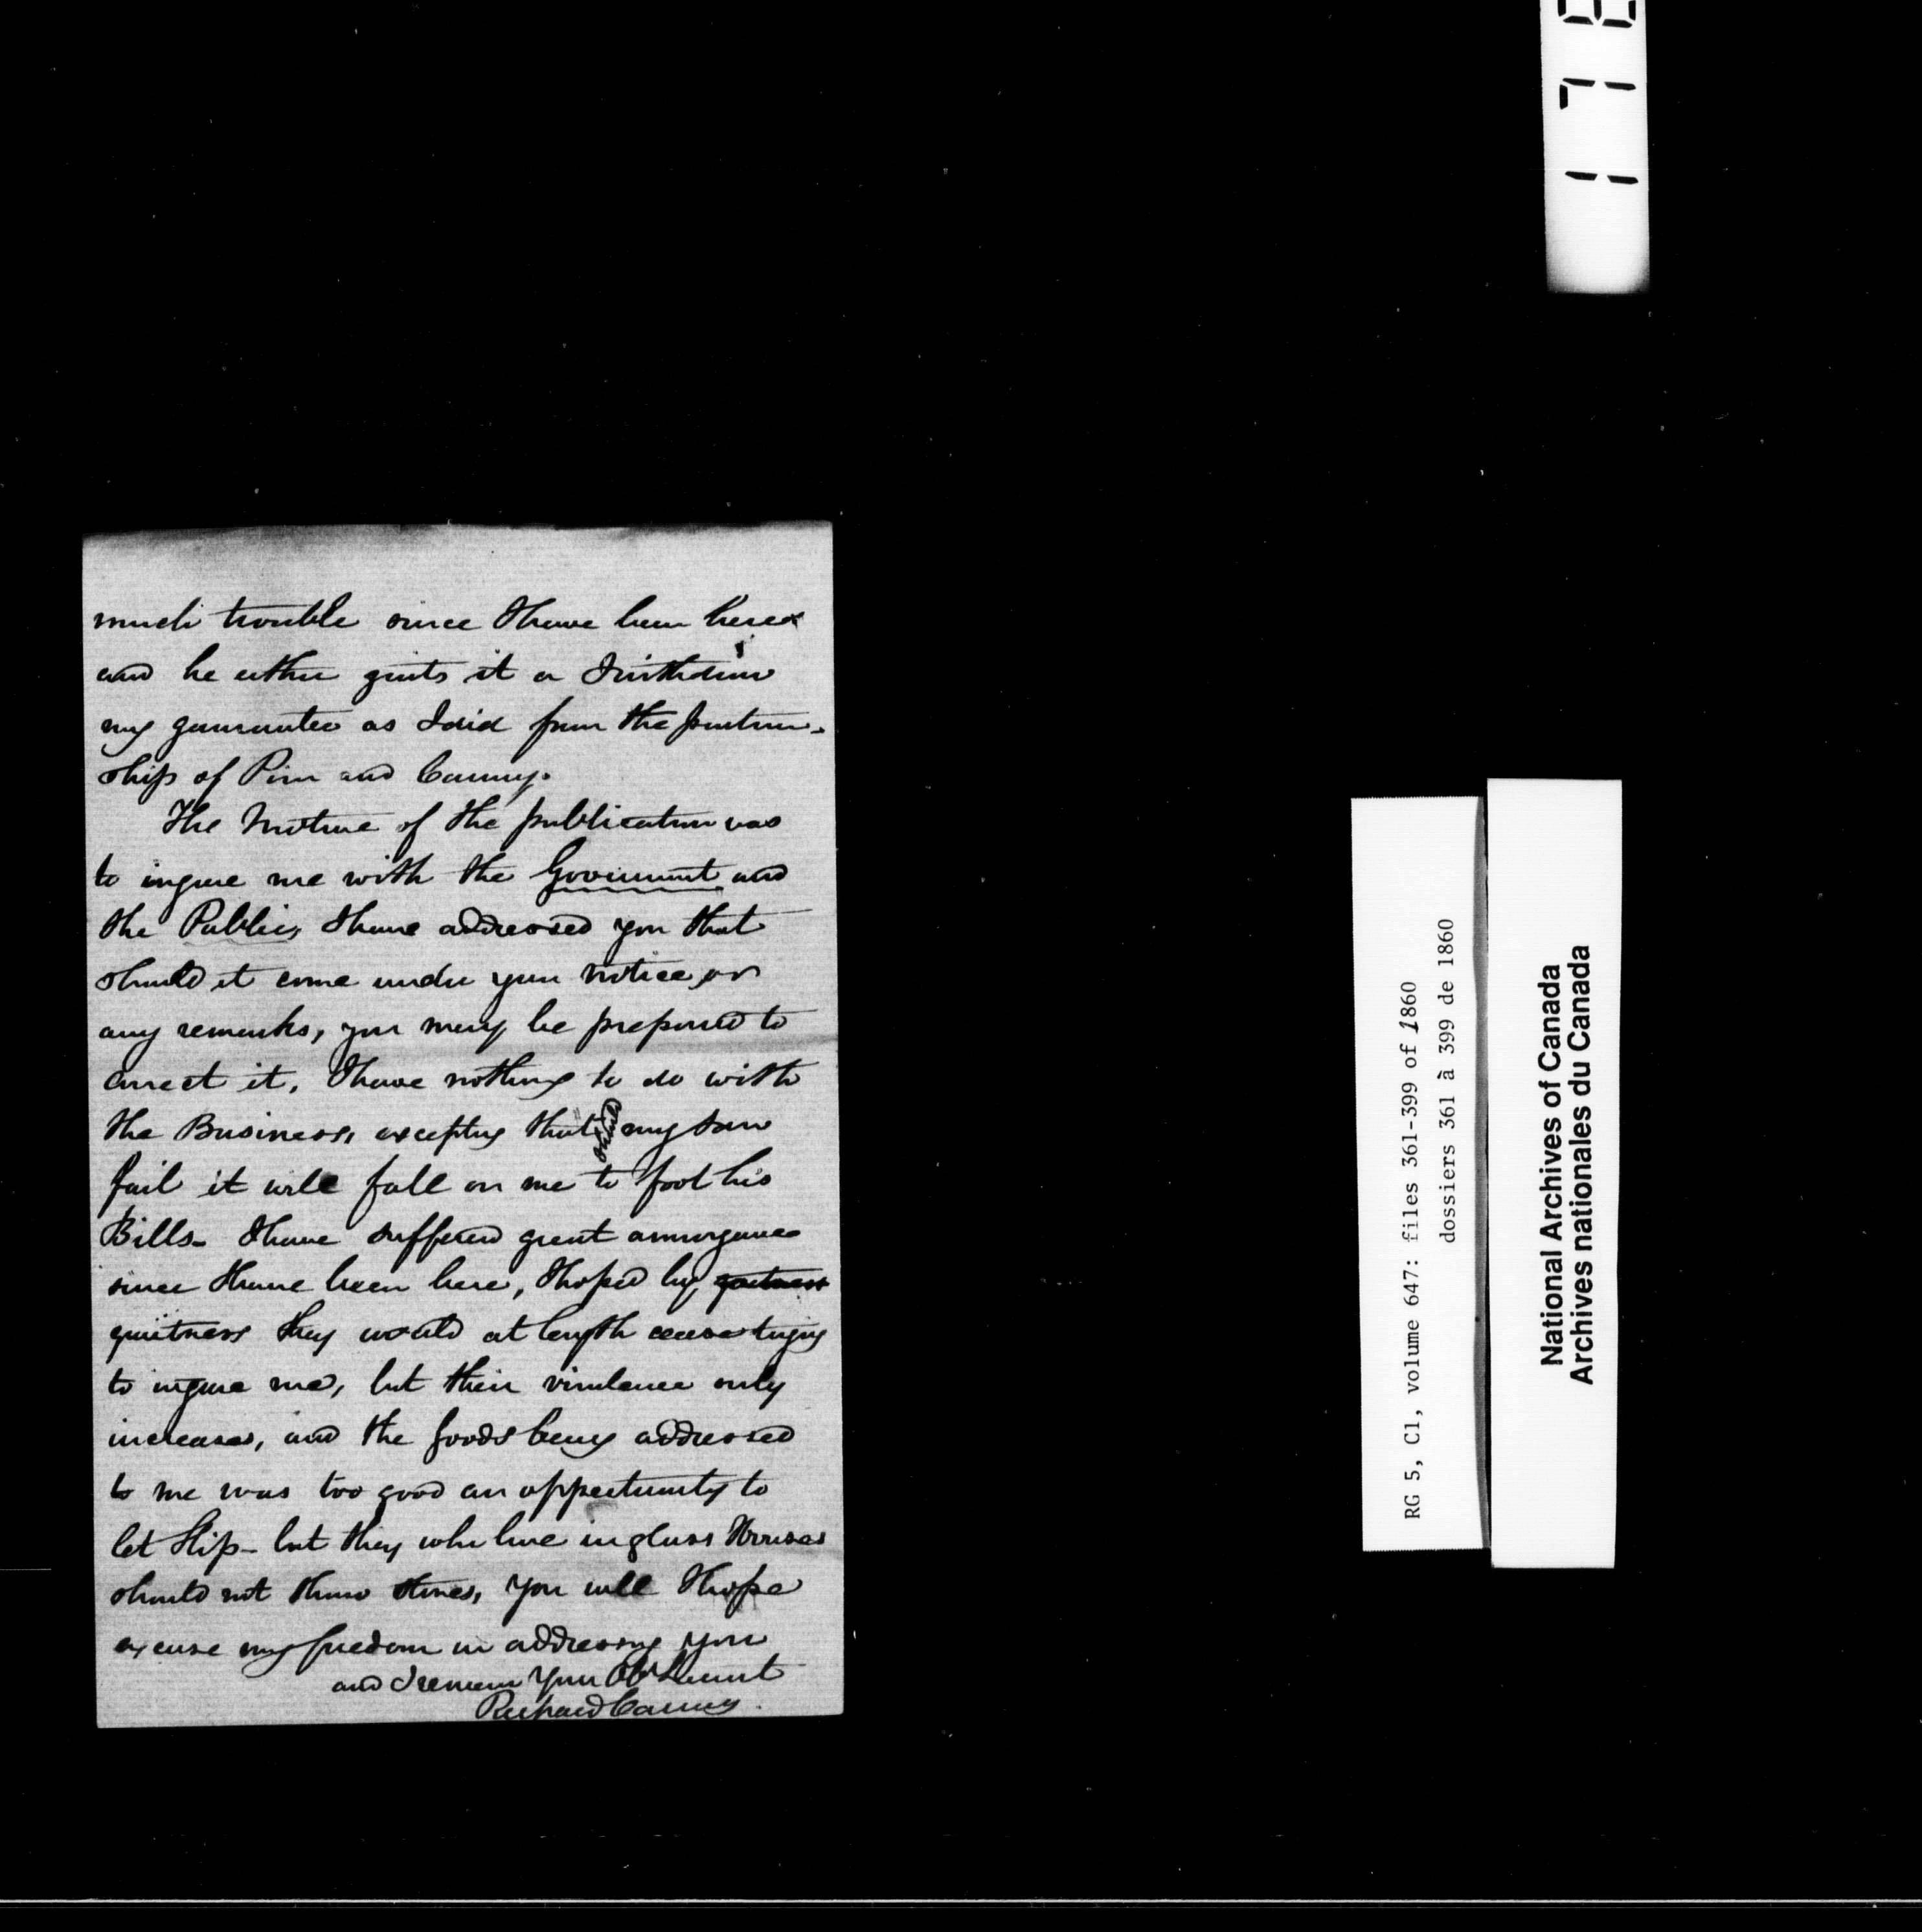 much trouble since I have been here
and he either quits it or I withdraw
my guarantee as I did from the partner-
ship of Pim and Canny.
The Motive of the publication was
to injure me with the Goverment and
the Public, I have addressed you that
should it come under your notice, or
any remarks, you may be prepared to
correct it, I have nothing to do with
the Business, excepting that should my Son
fail it will fall on me to foot his
Bills- I have suffered great annoyance
since I have been here, I hoped by quitness
quietness they would at length cease trying
to injure me, but their virulence only
increases, and the goods being addressed
to me was too good an oppertunity to
let Slip- but they who live in glass Houses
should not throw stones, You will I hope
excuse my freedom in addressing you
and I remain Your Obt Servant
Richard Canny.
178
RG 5, C1, volume 647: files 361-399 of 1860
dossiers 361 à 399 de 1860
National Archives of Canada
Archives nationales du Canada